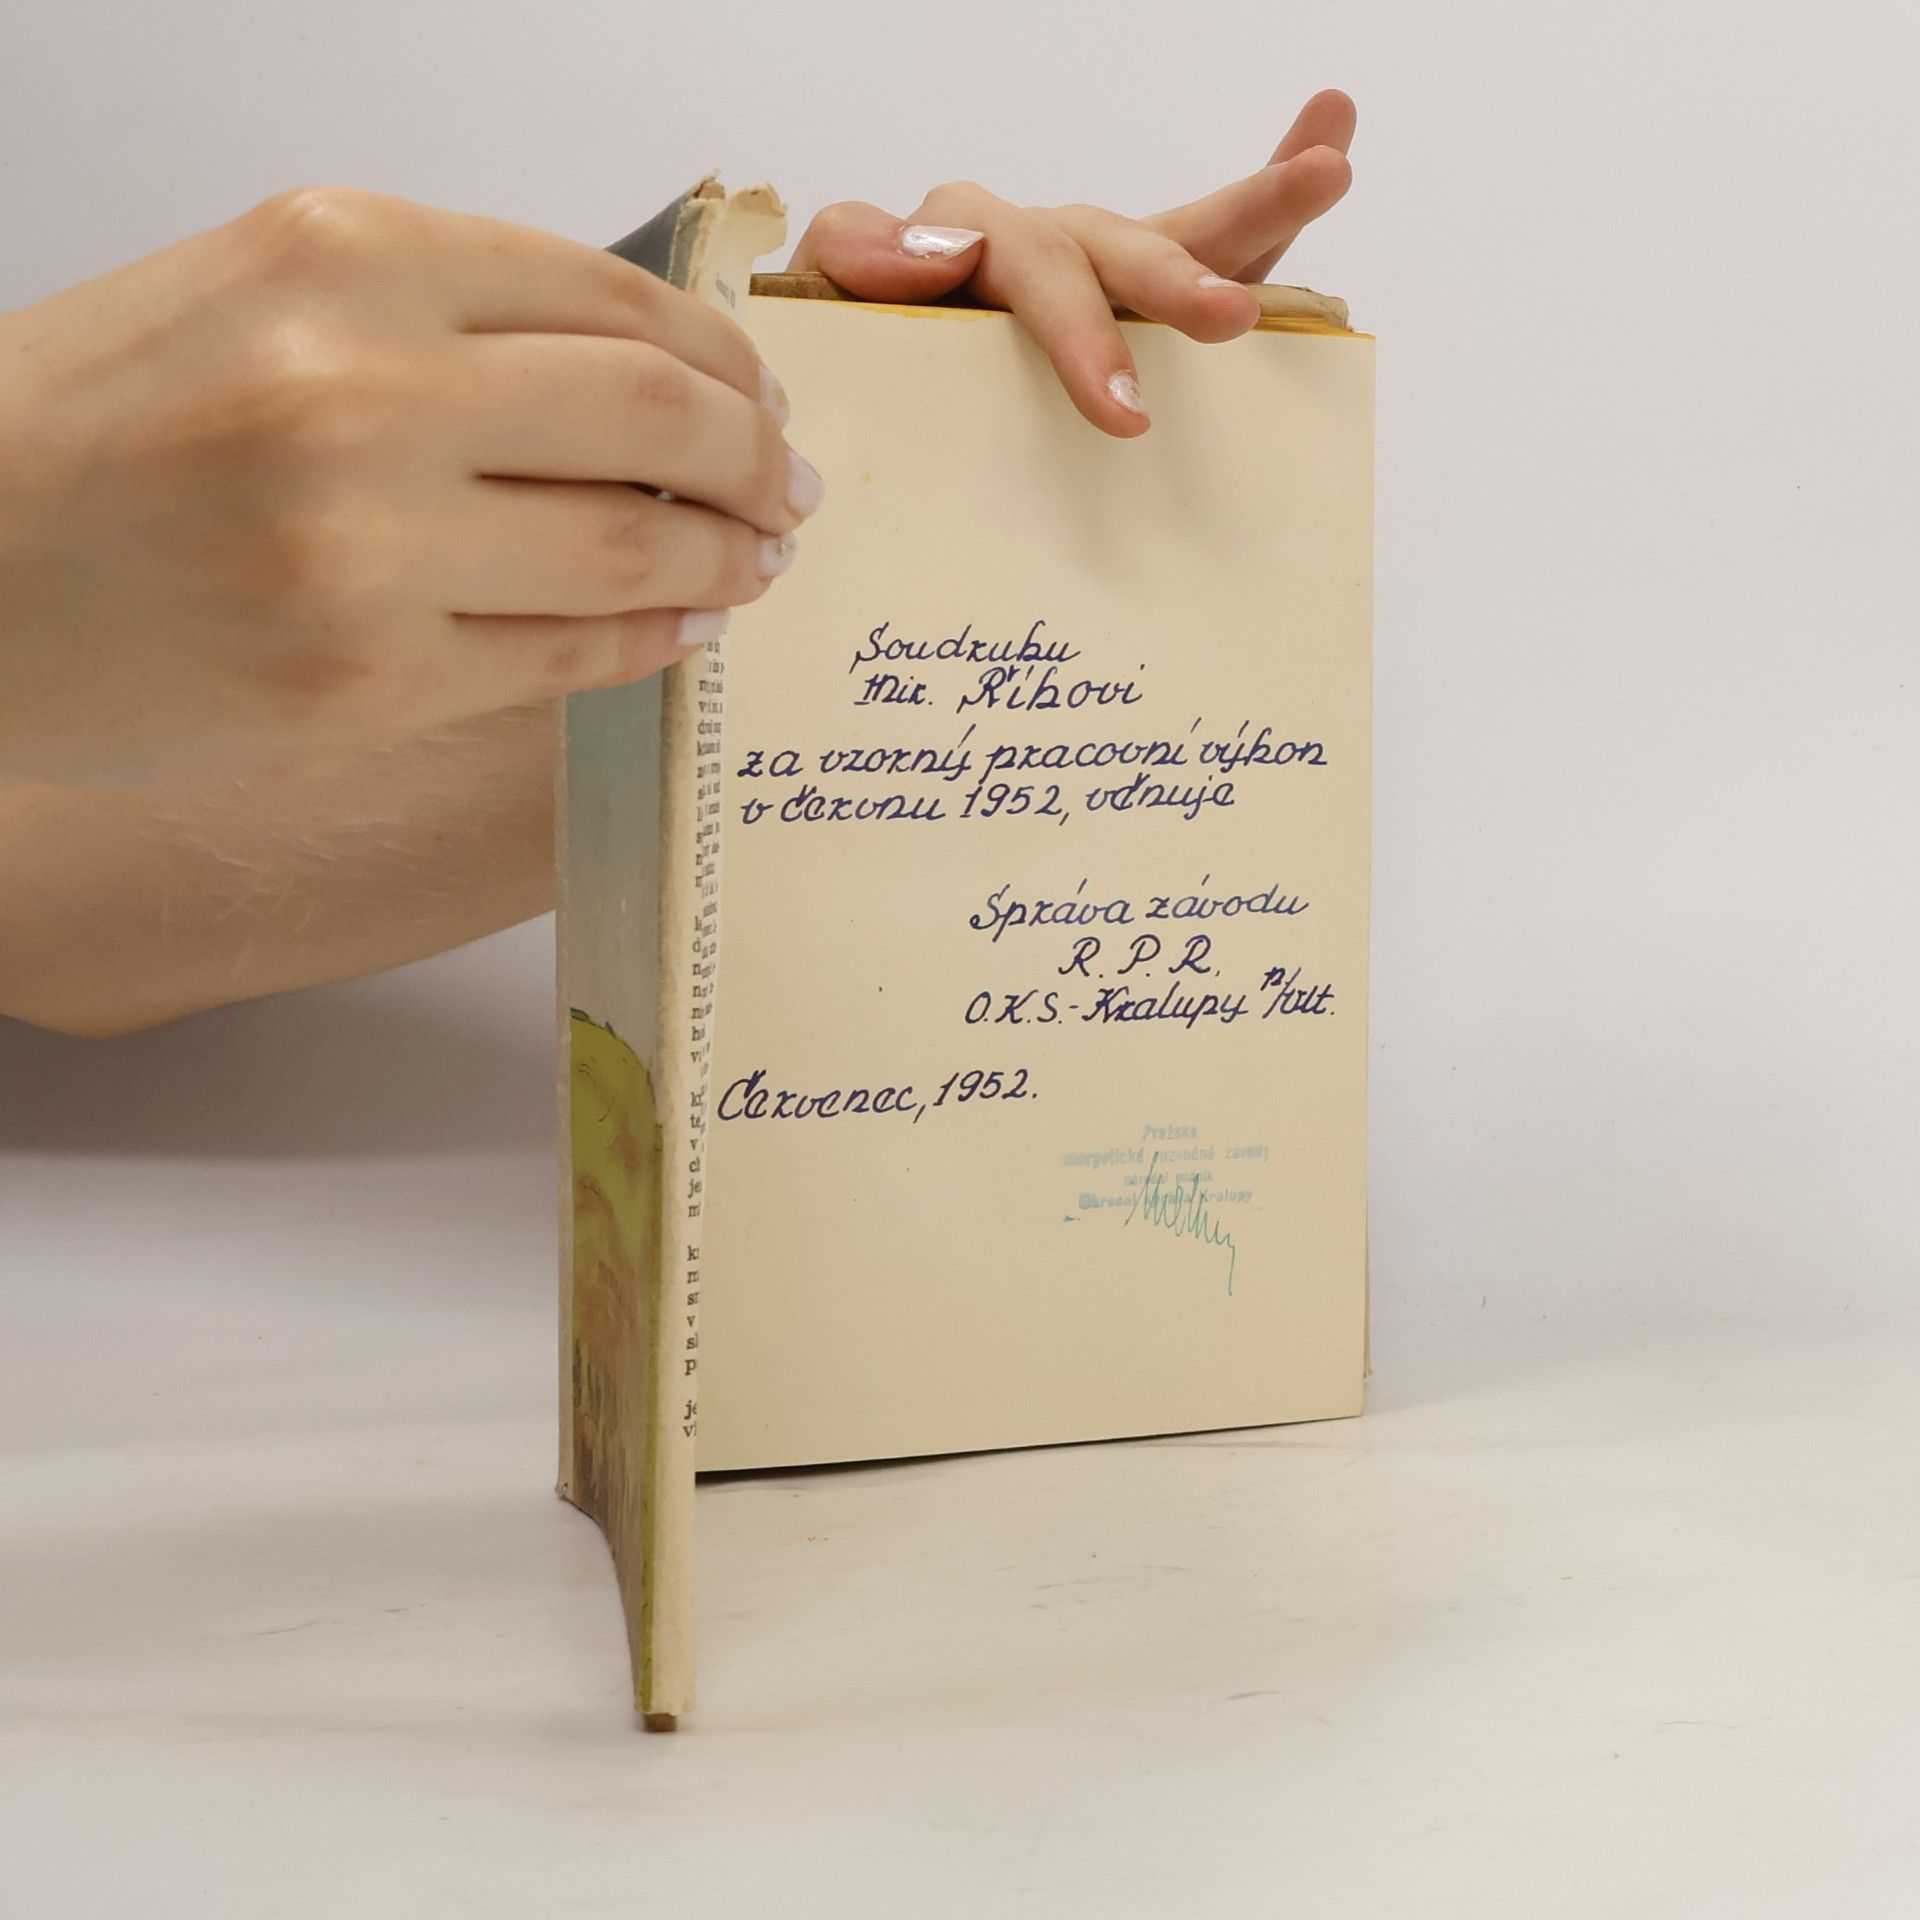 Soudruhu
Mir. Říhovi
za vzorný pracovní výkon
v červnu 1952, věnuje
Správa závodu
R. P. R.
O.K.S.-Kralupy n/Vlt.
Červenec, 1952.
Pražské
energetické rozvodné závody
národní podnik
Okresní správa Kralupy